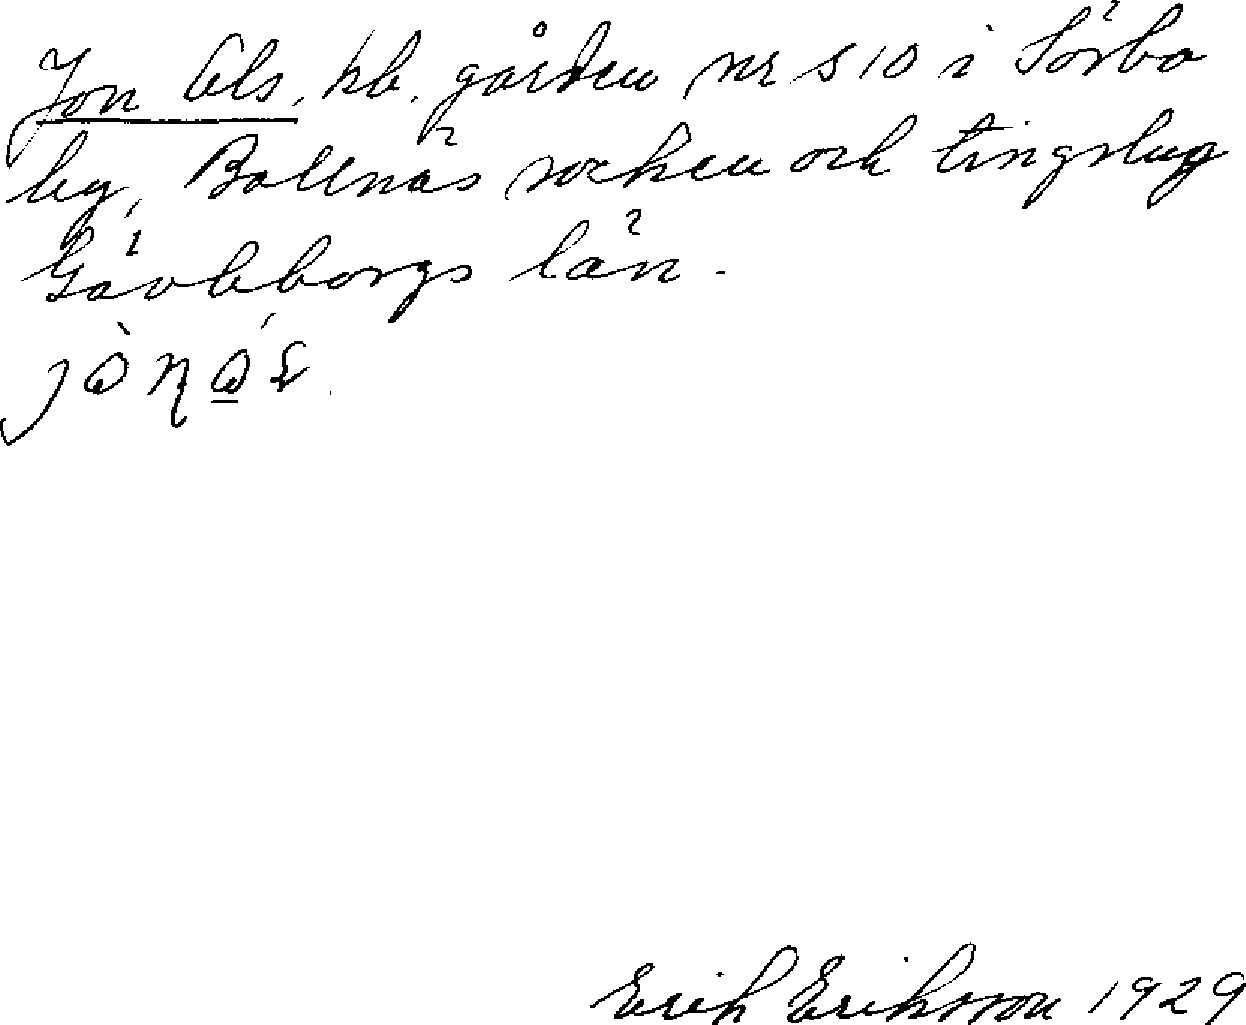 Jon Ols, hb. gården nr 510 i Sörbo
by, Bollnäs socken och tingslag
Gävleborgs län.
Erik Eriksson 1929